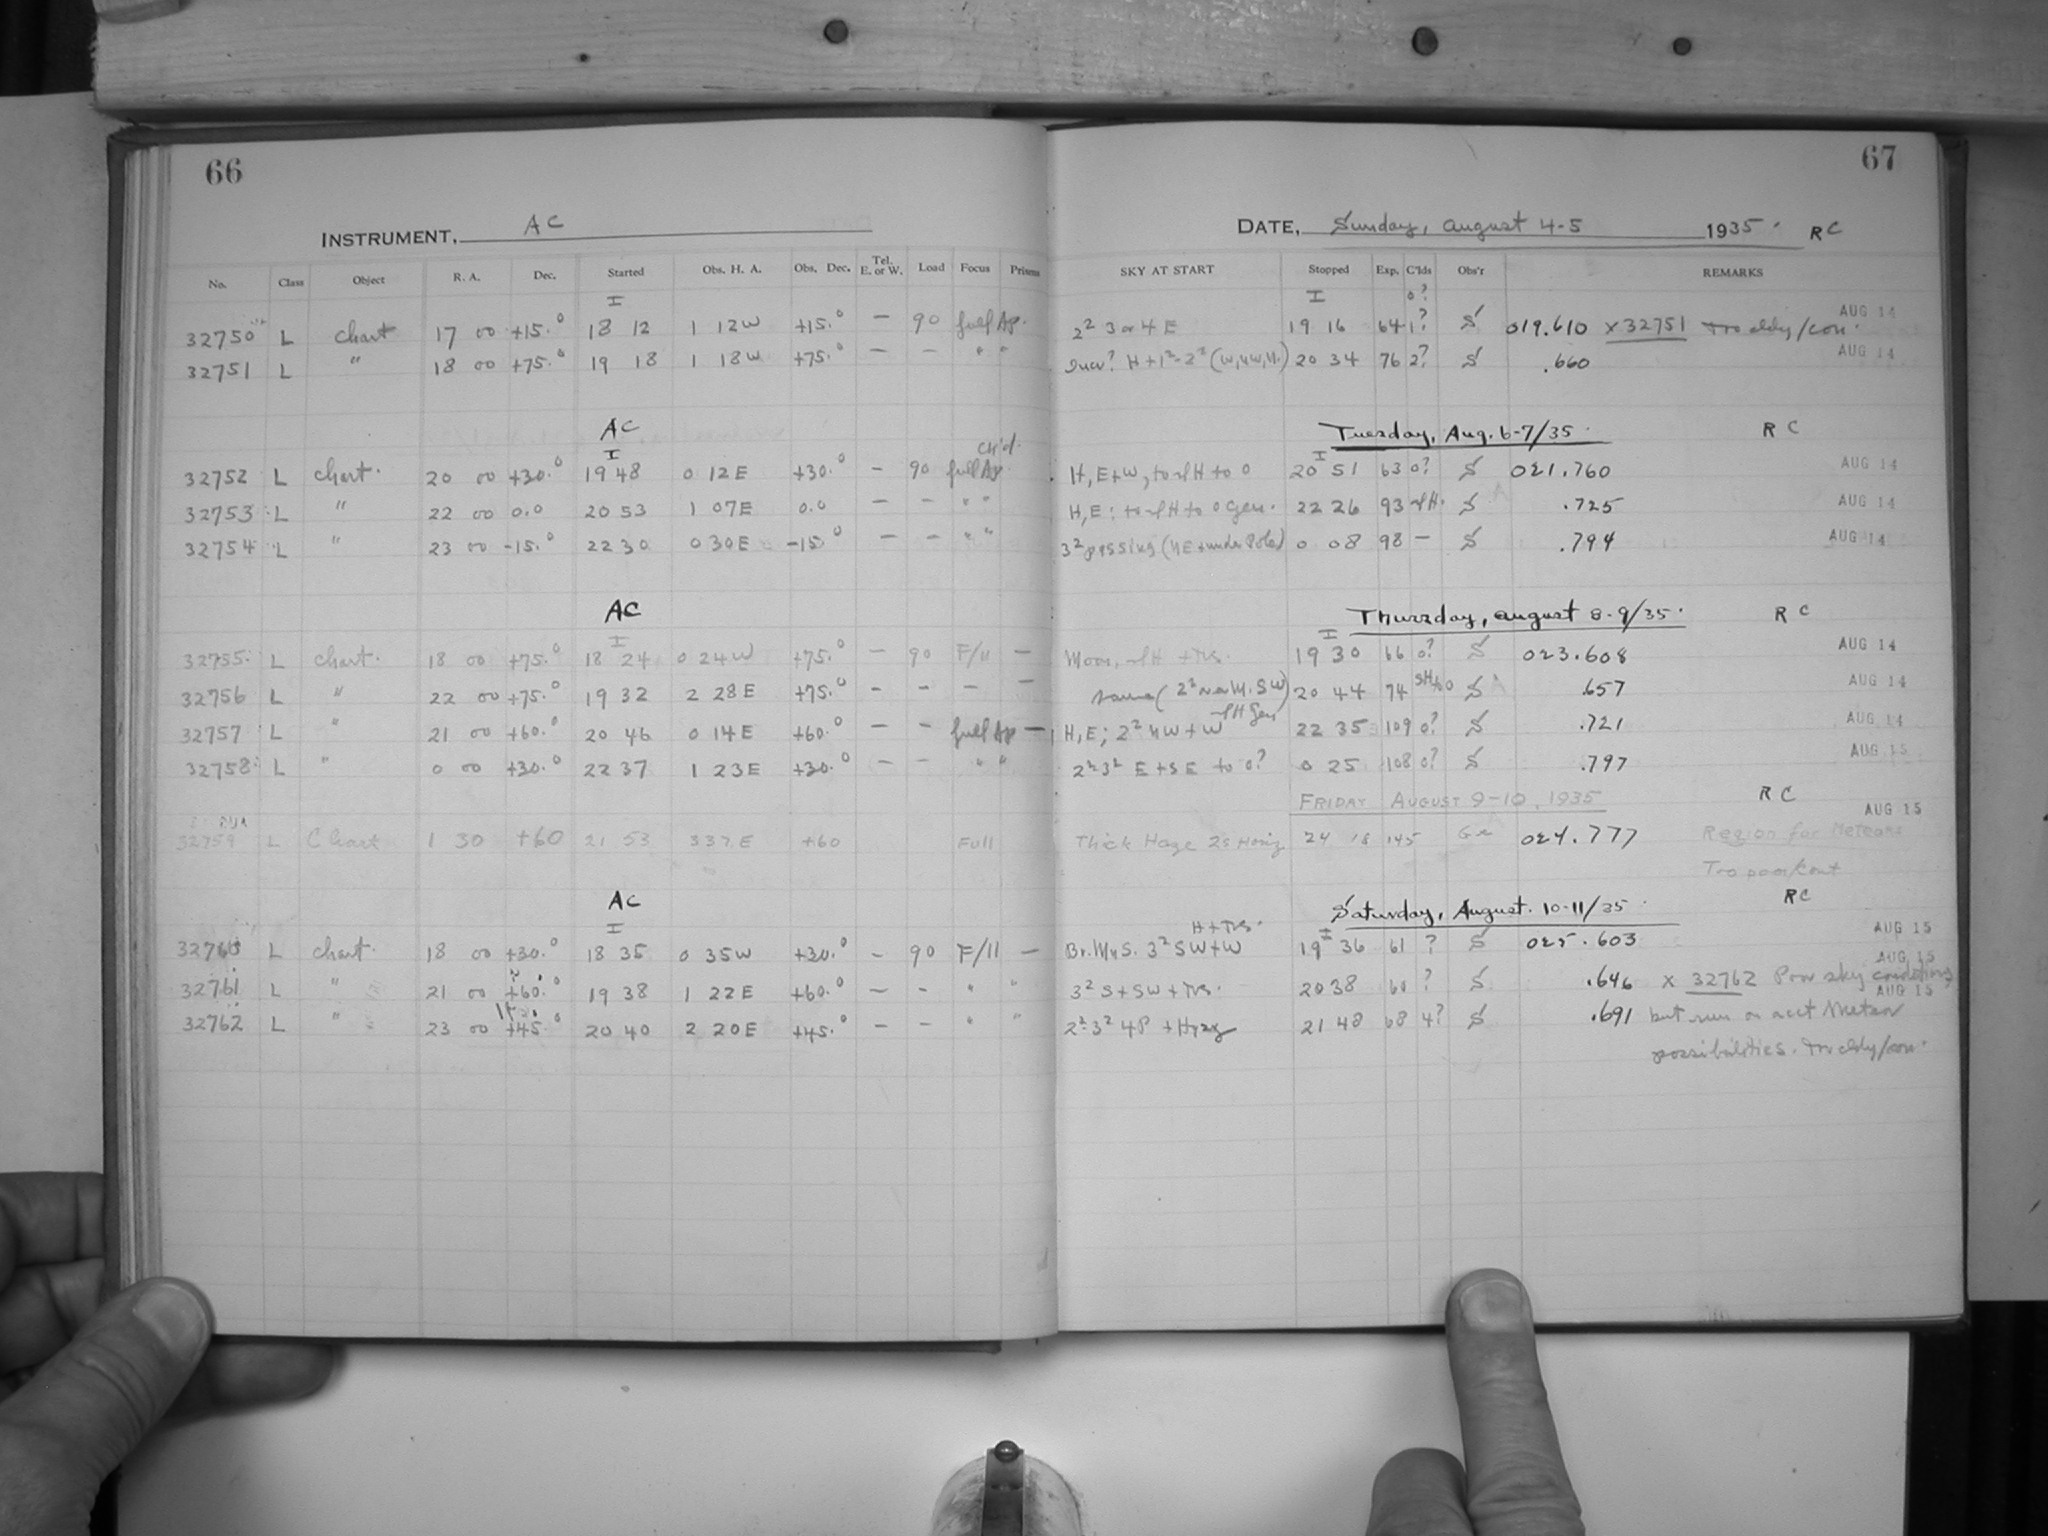 66
67
INSTRUMENT, AC
DATE, Sunday, August 4-5 1935. RC
No. Class Object R. A. Dec. Started Obs. H. A. Obs. Dec. Tel. E. or W. Load Focus Prisms SKY AT START Stopped Exp. C'lds Obs'r REMARKS
I I 0?
32750 L chart 17 00 +15.° 18 12 1 12W +15.° — 90 full Ap. 2² 3 or 4 E 19 16 64 1? S 019.610 x 32751 AUG 14
32751 L " 18 00 +75.° 19 18 1 18W +75.° — — " " 20 34 76 2? S .660 AUG 14
AC Tuesday, Aug. 6-7/35. RC
I I
32752 L chart. 20 00 +30.° 19 48 0 12E +30.° — 90 full Ap. H, E+W, 20 51 63 0? S 021.760 AUG 14
32753 L " 22 00 0.0 20 53 1 07E 0.0 — — " " H, E: 22 26 93 S .725 AUG 14
32754 L " 23 00 -15.° 22 30 0 30E -15.° — — " " 3² passing (NE + under Pole) 0 08 98 — S .794 AUG 14
AC Thursday, August 8-9/35. RC
I I
32755 L chart. 18 00 +75.° 18 24 0 24W +75.° — 90 F/11 — Moon, 19 30 66 0? S 023.608 AUG 14
32756 L " 22 00 +75.° 19 32 2 28E +75.° — — — — same 20 44 74 S .657 AUG 14
32757 L " 21 00 +60.° 20 46 0 14E +60.° — — full Ap — H, E; 2² NW + W 22 35 109 0? S .721 AUG 14
32758 L " 0 00 +30.° 22 37 1 23E +30.° — — " " 2²3² E+SE to 0? 0 25 108 0? S .797 AUG 15
FRIDAY AUGUST 9-10, 1935 RC
32759 L Chart 1 30 +60 21 53 3 37 E +60 Full Thick Haze 24 18 145 Ge 024.777 Region for Meteors AUG 15
Too poor/cont
AC Saturday, August. 10-11/35. RC
I H + I
32760 L chart. 18 00 +30.° 18 35 0 35W +30.° — 90 F/11 — 3² SW+W 19 36 61 ? S 025.603 AUG 15
32761 L " 21 00 +60.° 19 38 1 22E +60.° — — " " 3² S+SW+ 20 38 60 ? S .646 x 32762 Poor sky conditions AUG 15
32762 L " 23 00 +45.° 20 40 2 20E +45.° — — " " 2²3² 4P + Hazy 21 48 68 4? S .691 but run on acct Meteor AUG 15
possibilities.